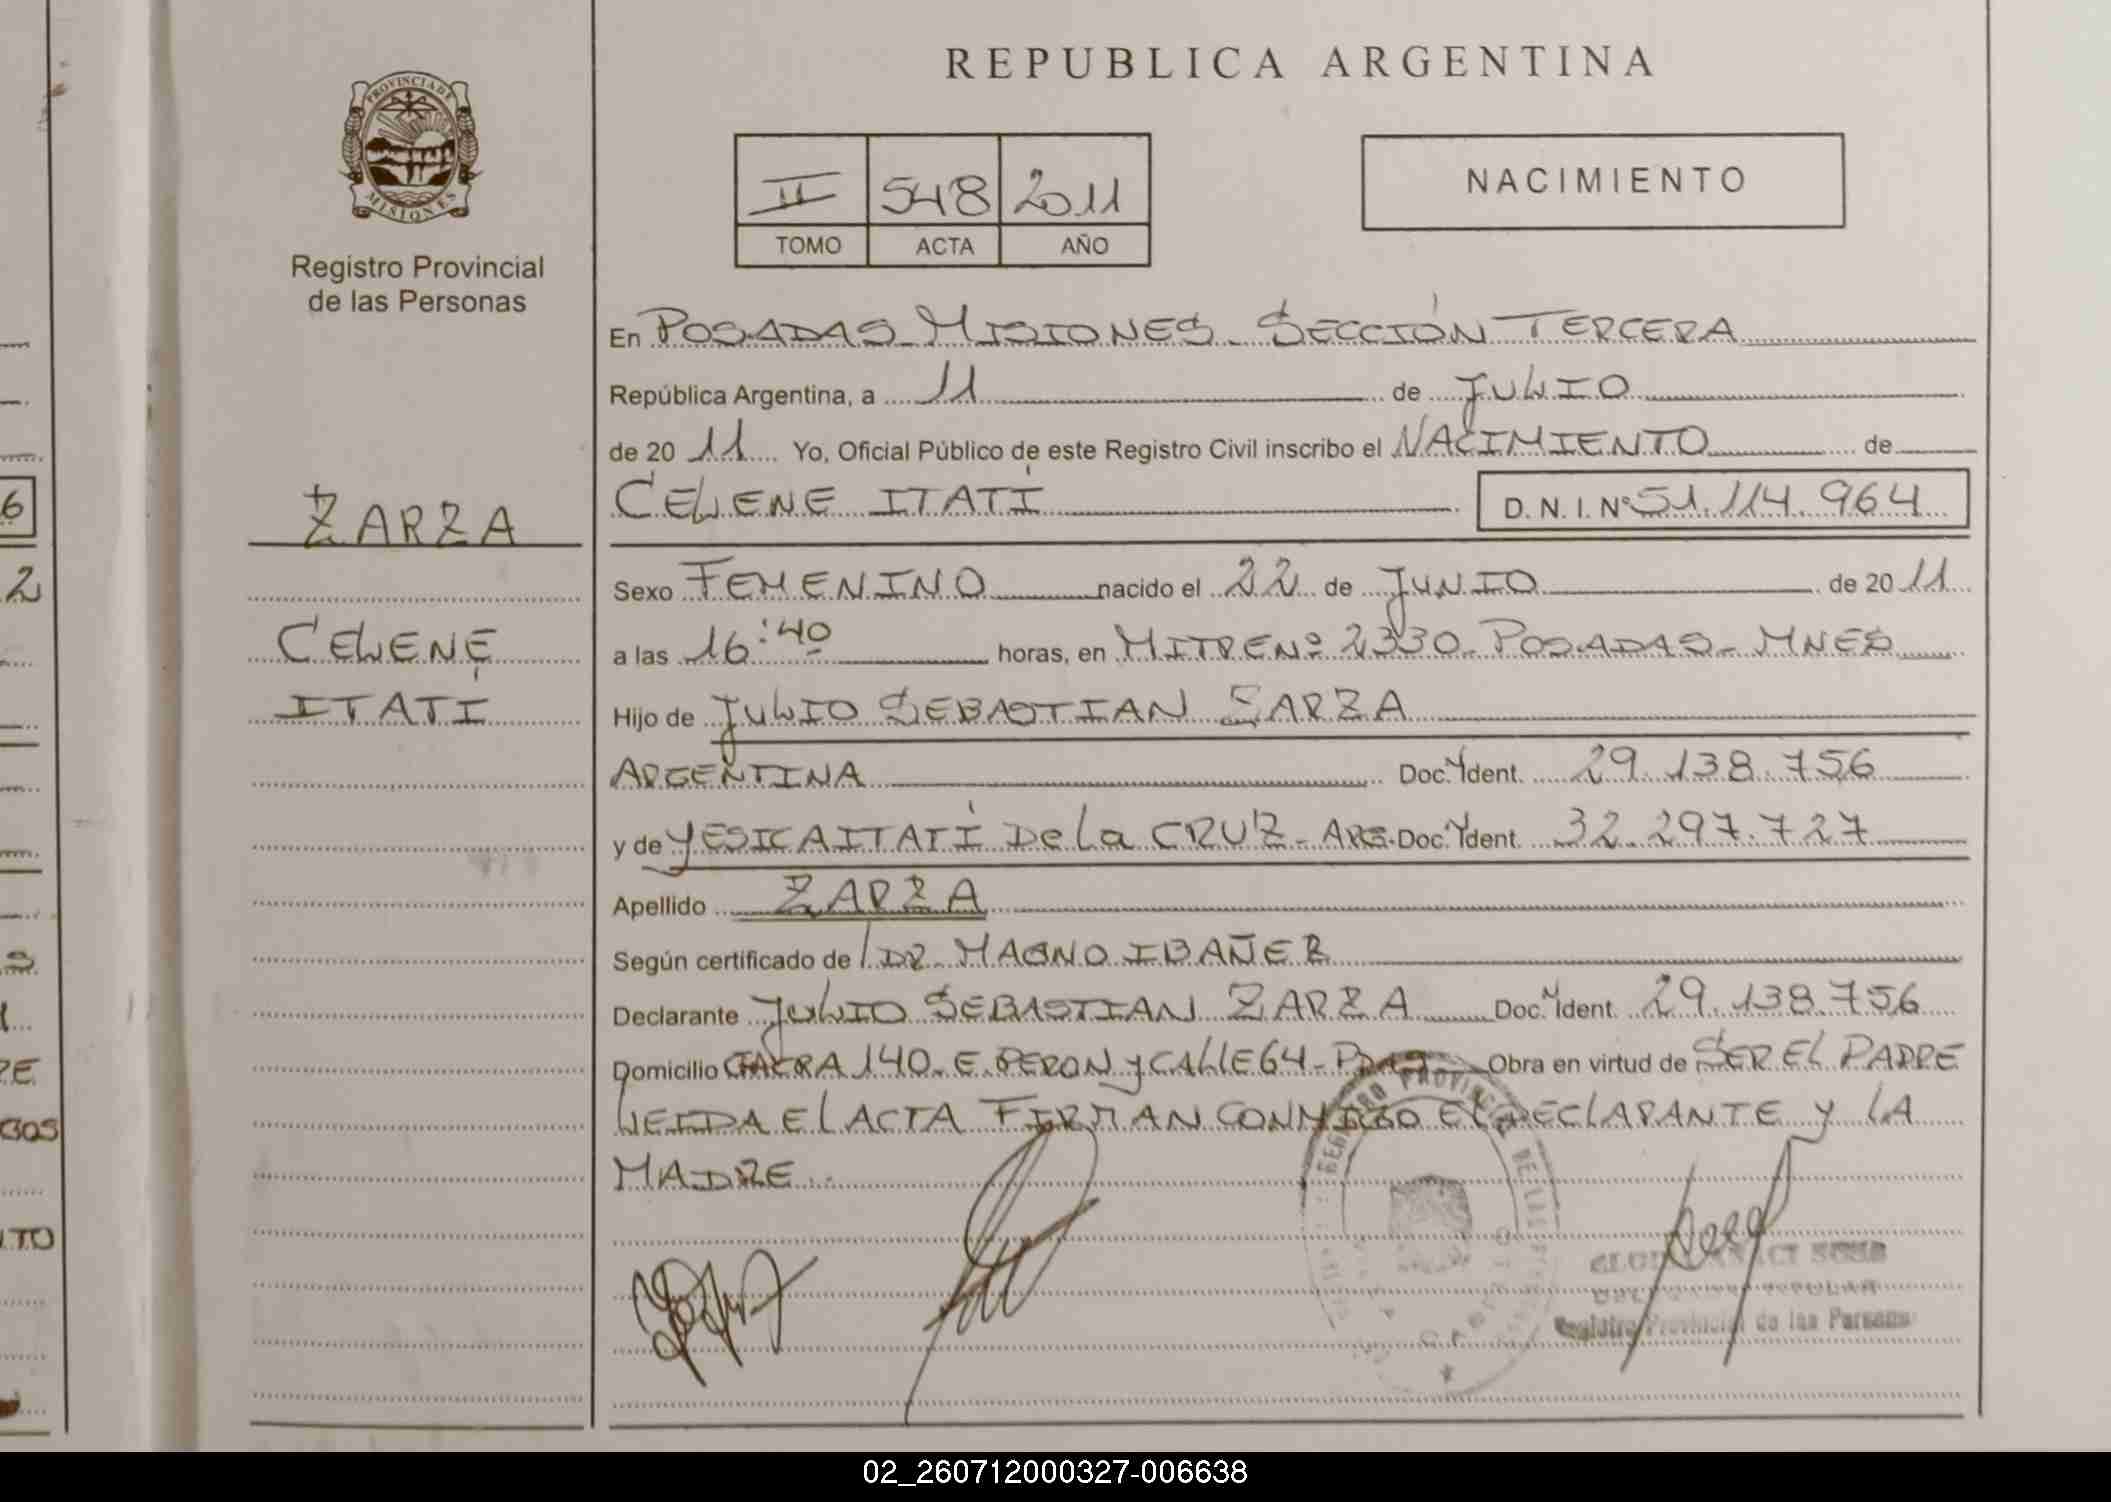 REPUBLICA ARGENTINA
PROVINCIA DE
MISIONES
Registro Provincial
de las Personas
II 548 2011
TOMO ACTA AÑO
NACIMIENTO
En POSADAS - MISIONES - SECCIÓN TERCERA
República Argentina, a 11 de JULIO
de 20 11 Yo, Oficial Público de este Registro Civil inscribo el NACIMIENTO de
CELENE ITATÍ D. N. I. Nº 51.114.964
ZARZA
CELENE
ITATÍ
Sexo FEMENINO nacido el 22 de JUNIO de 20 11
a las 16:40 horas, en MITRE Nº 2330 - POSADAS - MNES
Hijo de JULIO SEBASTIAN ZARZA
ARGENTINA Doc. Ident. 29.138.756
y de YESICA ITATÍ De La CRUZ - ARG. Doc. Ident. 32.297.727
Apellido ZARZA
Según certificado de DR. MAGNO IBAÑEZ
Declarante JULIO SEBASTIAN ZARZA Doc. Ident. 29.138.756
Domicilio CHACRA 140 - E. PERON y CALLE 64 - Obra en virtud de SER EL PADRE
LEIDA EL ACTA FIRMAN CONMIGO EL DECLARANTE Y LA
MADRE.
REGISTRO PROVINCIAL DE LAS
Registro Provincial de las Personas
6
2
RE
GOS
NTO
02_260712000327-006638